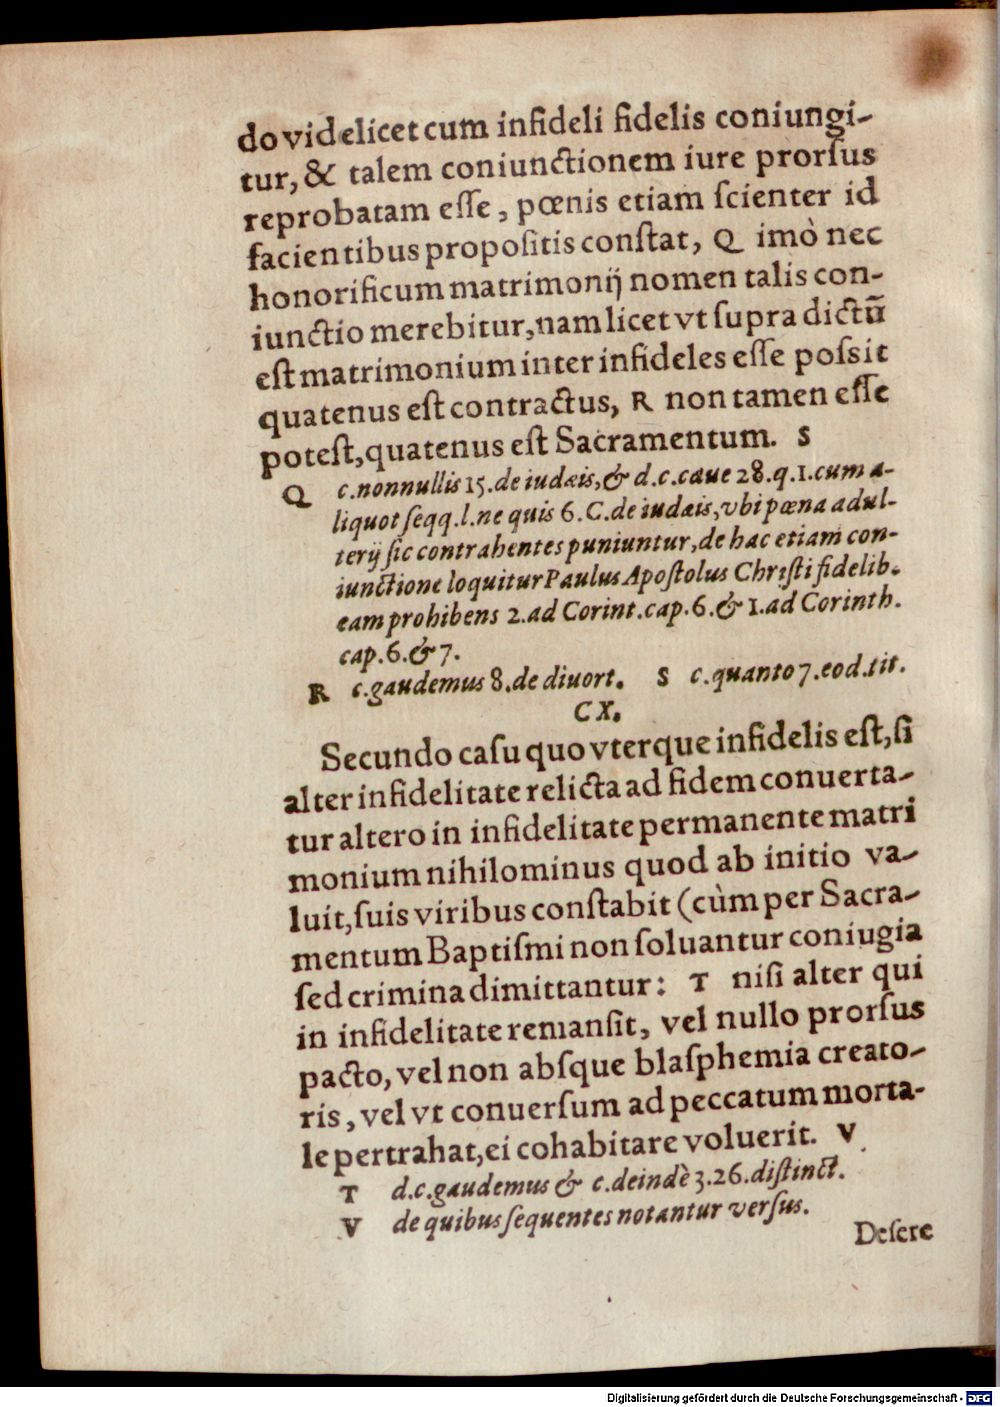 do videlicet cum infideli fidelis coniungi-
tur, & talem coniunctionem iure prorſus
reprobatam eſſe, pœnis etiam ſcienter id
facientibus propoſitis conſtat, Q imò nec
honorificum matrimonij nomen talis con-
iunctio merebitur, nam licet vt ſupra dictũ
eſt matrimonium inter infideles eſſe poſsit
quatenus eſt contractus, R non tamen eſſe
poteſt, quatenus eſt Sacramentum. S
Q c. nonnullis 15. de iudæis, & d. c. caue 28. q. 1. cum a-
liquot ſeqq. l. ne quis 6. C. de iudæis, vbi pœna adul-
terij ſic contrahentes puniuntur, de hac etiam con-
iunctione loquitur Paulus Apoſtolus Chriſti fidelib.
eam prohibens 2. ad Corint. cap. 6. & 1. ad Corinth.
cap. 6. & 7.
R c. gaudemus 8. de diuort. S c. quanto 7. eod. tit.
CX.
Secundo caſu quo vterque infidelis eſt, ſi
alter infidelitate relicta ad fidem conuerta-
tur altero in infidelitate permanente matri
monium nihilominus quod ab initio va-
luit, ſuis viribus conſtabit (cùm per Sacra-
mentum Baptiſmi non ſoluantur coniugia
ſed crimina dimittantur: T niſi alter qui
in infidelitate remanſit, vel nullo prorſus
pacto, vel non abſque blaſphemia creato-
ris, vel vt conuerſum ad peccatum morta-
le pertrahat, ei cohabitare voluerit. V
T d. c. gaudemus & c. deindè 3. 26. diſtinct.
V de quibus ſequentes notantur verſus.
Deſere
Digitalisierung gefördert durch die Deutsche Forschungsgemeinschaft - DFG